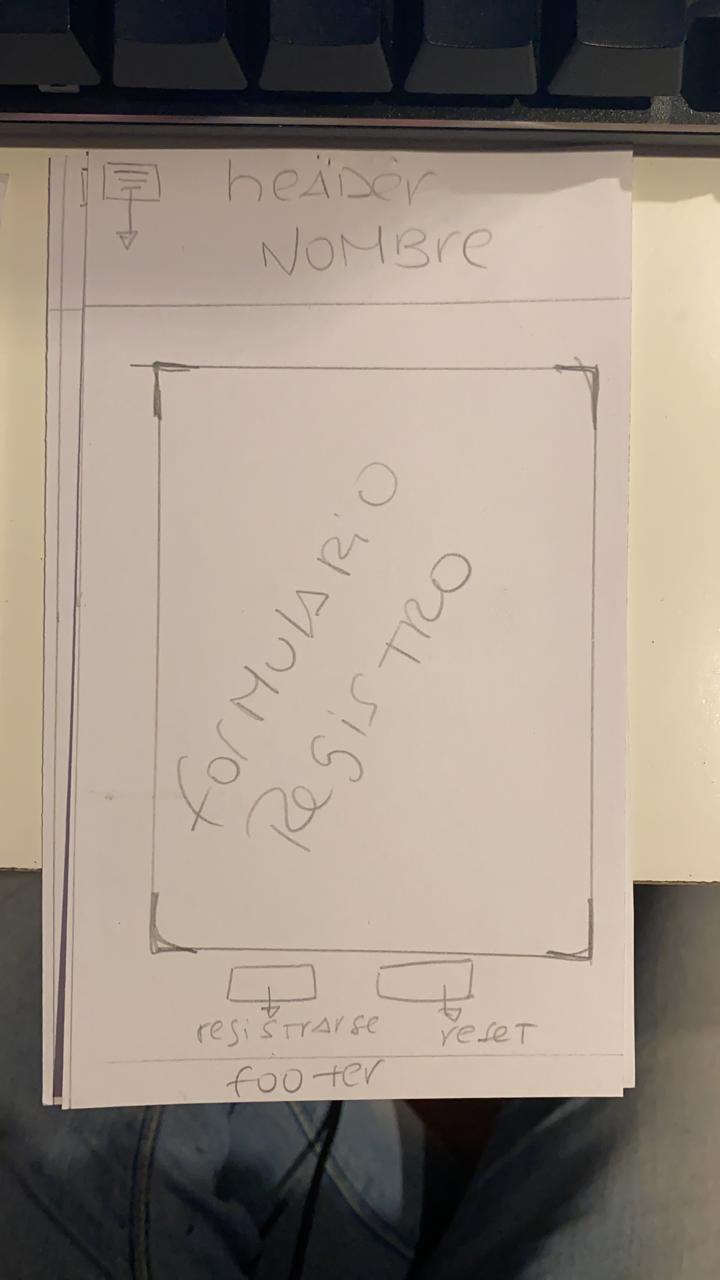 heADer
NOMBre
forMULARiO
RegisTRO
regisTrArse
reseT
footer